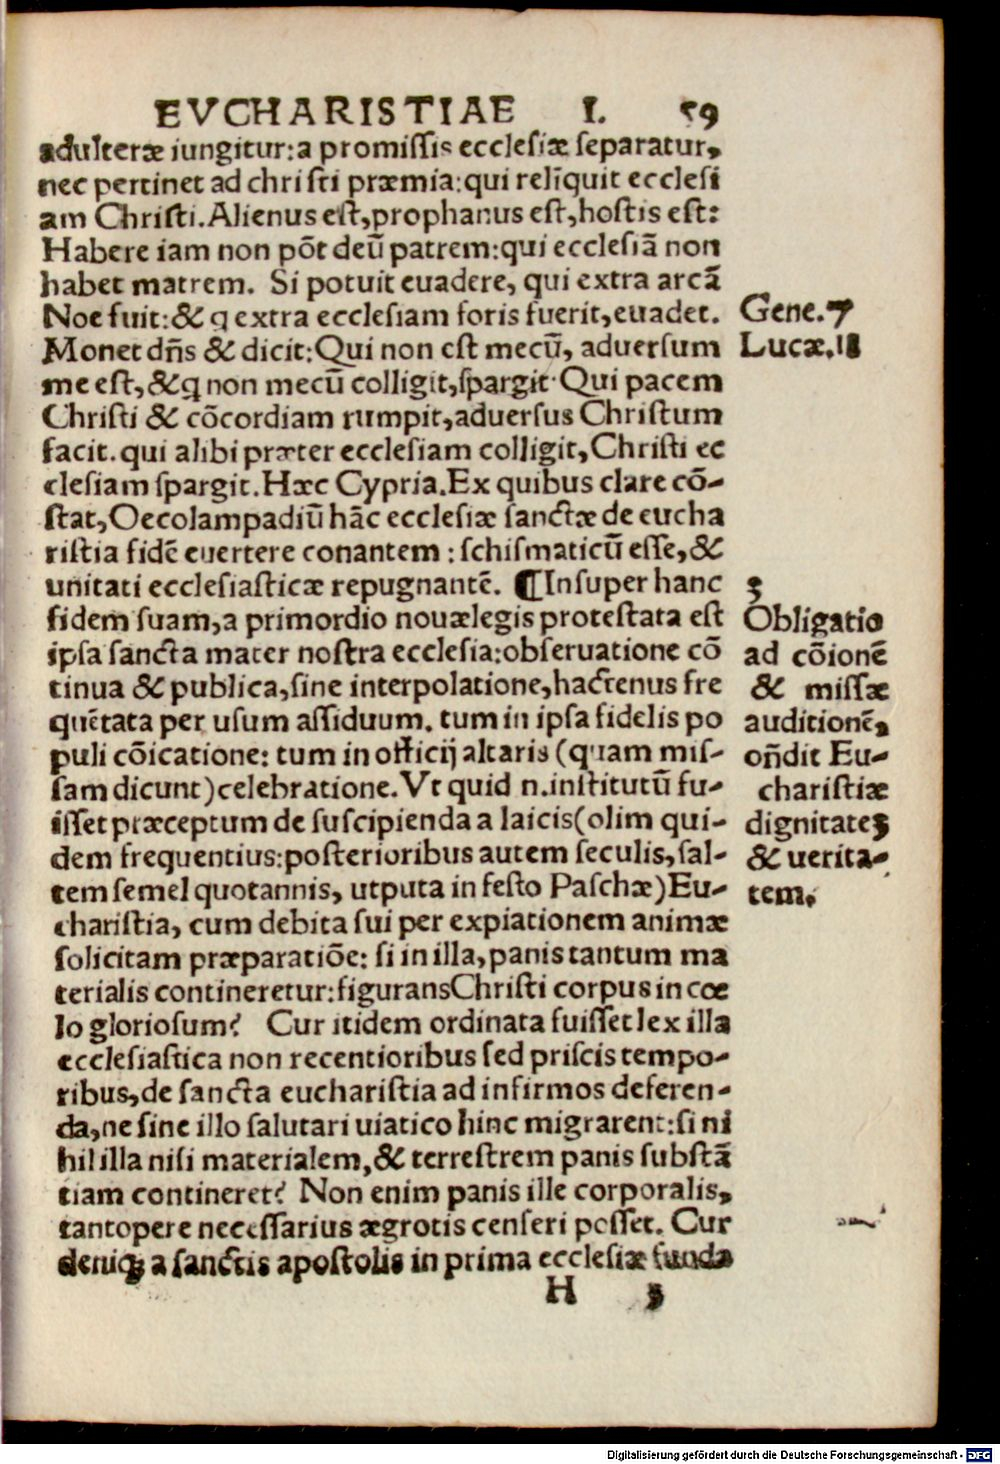 EVCHARISTIAE I. 59
adulteræ iungitur: a promissis ecclesiæ separatur,
nec pertinet ad christi præmia: qui relīquit ecclesi
am Christi. Alienus est, prophanus est, hostis est:
Habere iam non pōt deū patrem: qui ecclesiā non
habet matrem. Si potuit euadere, qui extra arcā
Noe fuit: & q extra ecclesiam foris fuerit, euadet.
Monet dñs & dicit: Qui non est mecū, aduersum
me est, & q non mecū colligit, spargit· Qui pacem
Christi & cōcordiam rumpit, aduersus Christum
facit. qui alibi præter ecclesiam colligit, Christi ec
clesiam spargit. Hæc Cypria. Ex quibus clare cō-
stat, Oecolampadiū hāc ecclesiæ sanctæ de eucha
ristia fidē euertere conantem: schismaticū esse, &
unitati ecclesiasticæ repugnantē. ¶ Insuper hanc
fidem suam, a primordio nouælegis protestata est
ipsa sancta mater nostra ecclesia: obseruatione cō
tinua & publica, sine interpolatione, hactenus fre
quētata per usum assiduum. tum in ipsa fidelis po
puli cōicatione: tum in officij altaris (quam mis-
sam dicunt) celebratione. Vt quid n. institutū fu-
isset præceptum de suscipienda a laicis (olim qui-
dem frequentius: posterioribus autem seculis, sal-
tem semel quotannis, utputa in festo Paschæ) Eu-
charistia, cum debita sui per expiationem animæ
solicitam præparatiōe: si in illa, panis tantum ma
terialis contineretur: figurans Christi corpus in cœ
lo gloriosum? Cur itidem ordinata fuisset lex illa
ecclesiastica non recentioribus sed priscis tempo-
ribus, de sancta eucharistia ad infirmos deferen-
da, ne sine illo salutari uiatico hinc migrarent: si ni
hil illa nisi materialem, & terrestrem panis substā
tiam contineret? Non enim panis ille corporalis,
tantopere necessarius ægrotis censeri posset. Cur
deniq; a sanctis apostolis in prima ecclesiæ funda
H 3
Gene. 7
Lucæ. 18
3
Obligatio
ad cōionē
& missæ
auditionē,
oñdit Eu-
charistiæ
dignitatē
& uerita-
tem.
Digitalisierung gefördert durch die Deutsche Forschungsgemeinschaft - DFG